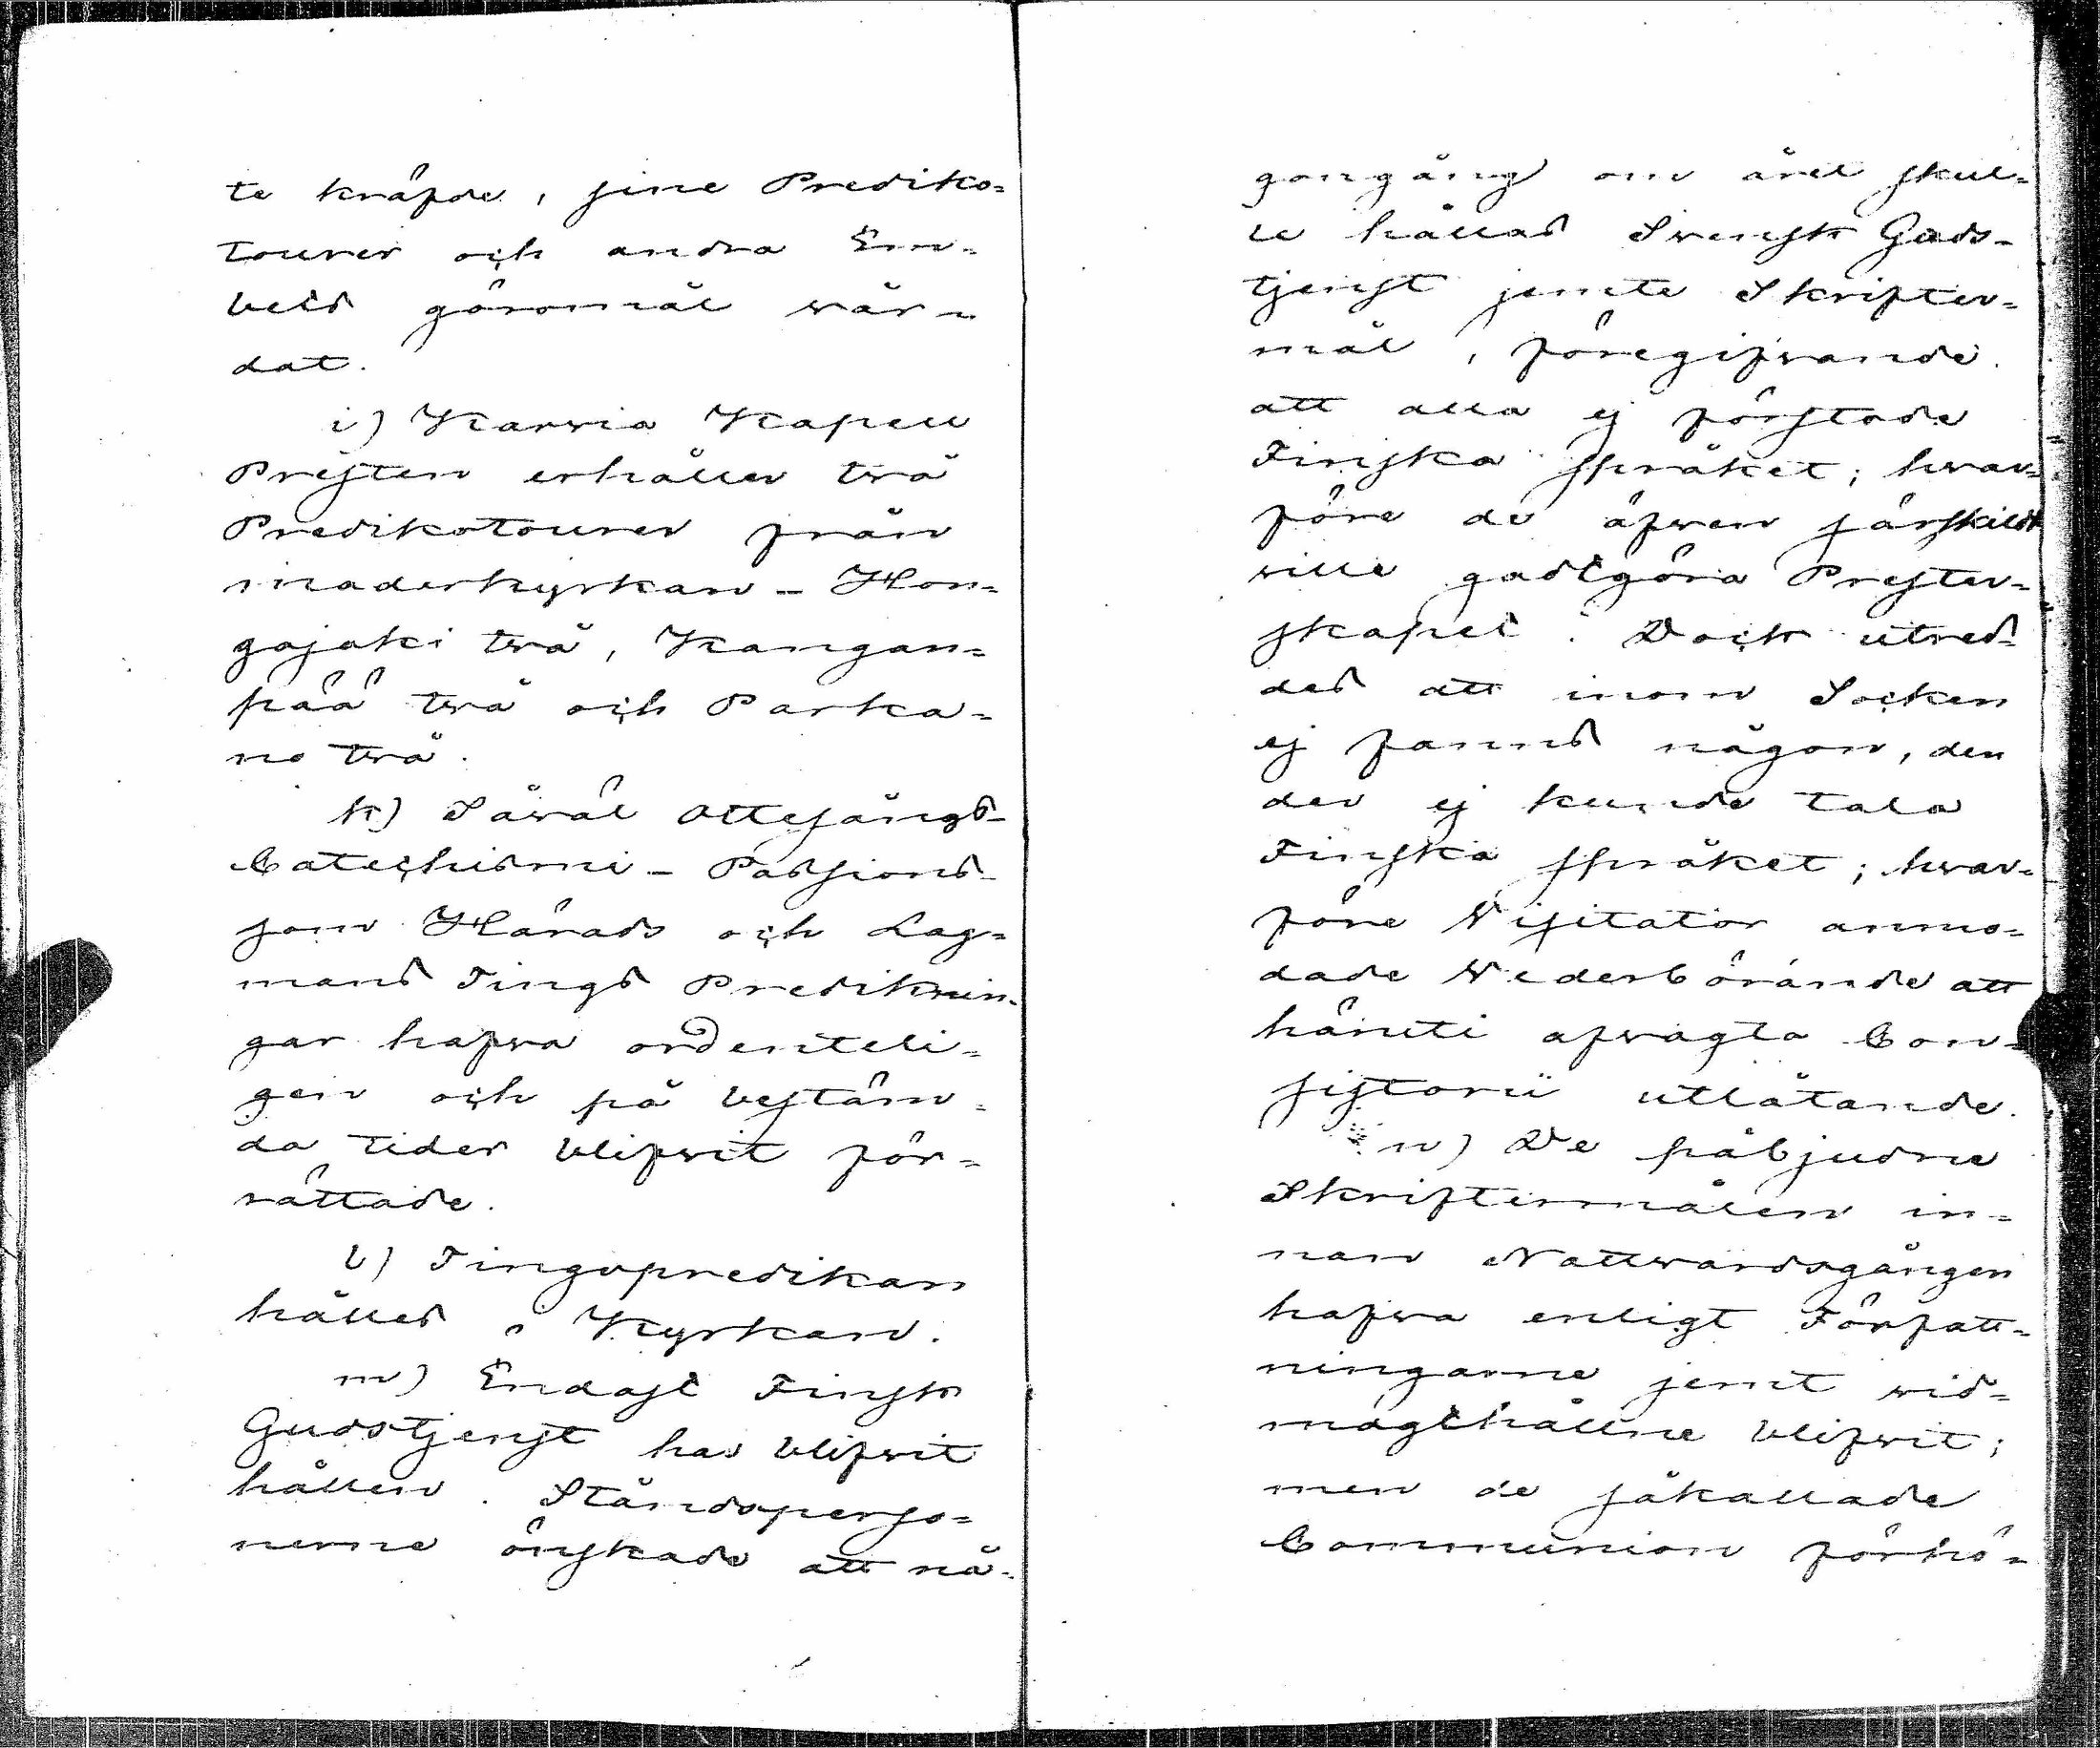 te kräfde, sine Prediko=
tourer och andra Em=
bets göromål vår=
dat.
i) Karvia Kapell
Presten erhåller två
Predikotourer från
maderkyrkan - Hon=
gajoki två, Kangan=
pää två och Parka=
no två.
k) Såväl Ottesångs-
Catechismi - Passions-
som Härads och Lag=
mans Tings Predknin=
gar hafva ordenteli=
gen och på bestäm=
da tider blifvit för=
rättade.
l) Tingspredikan
hålles i Kyrkan.
m) Endast Finsk
Gudstjenst har blifvit
hållen. Ståndsperso=
nerne önskade att nå=
gongång om året skul=
le hållas Svensk Guds=
tjenst jemte Skrifter=
mål, föregifvande
att alla ej förstode
Finska språket; hvar=
före de äfven särskildt
ville godtgöra Prester=
skapet. Dock utred=
des att inom Socken
ej fanns någon, den
der ej kunde tala
Finska språket; hvar=
före Visitator anmo=
dade Vederbörande att
häruti afvagta Con=
sistorii utlåtande.
n) De påbjudne
Skriftermålen in=
nan Nattvardsgången
hafva enligt Författ=
ningarne jemt vid=
magthållne blifvit;
men de såkallade
Communion förhö=